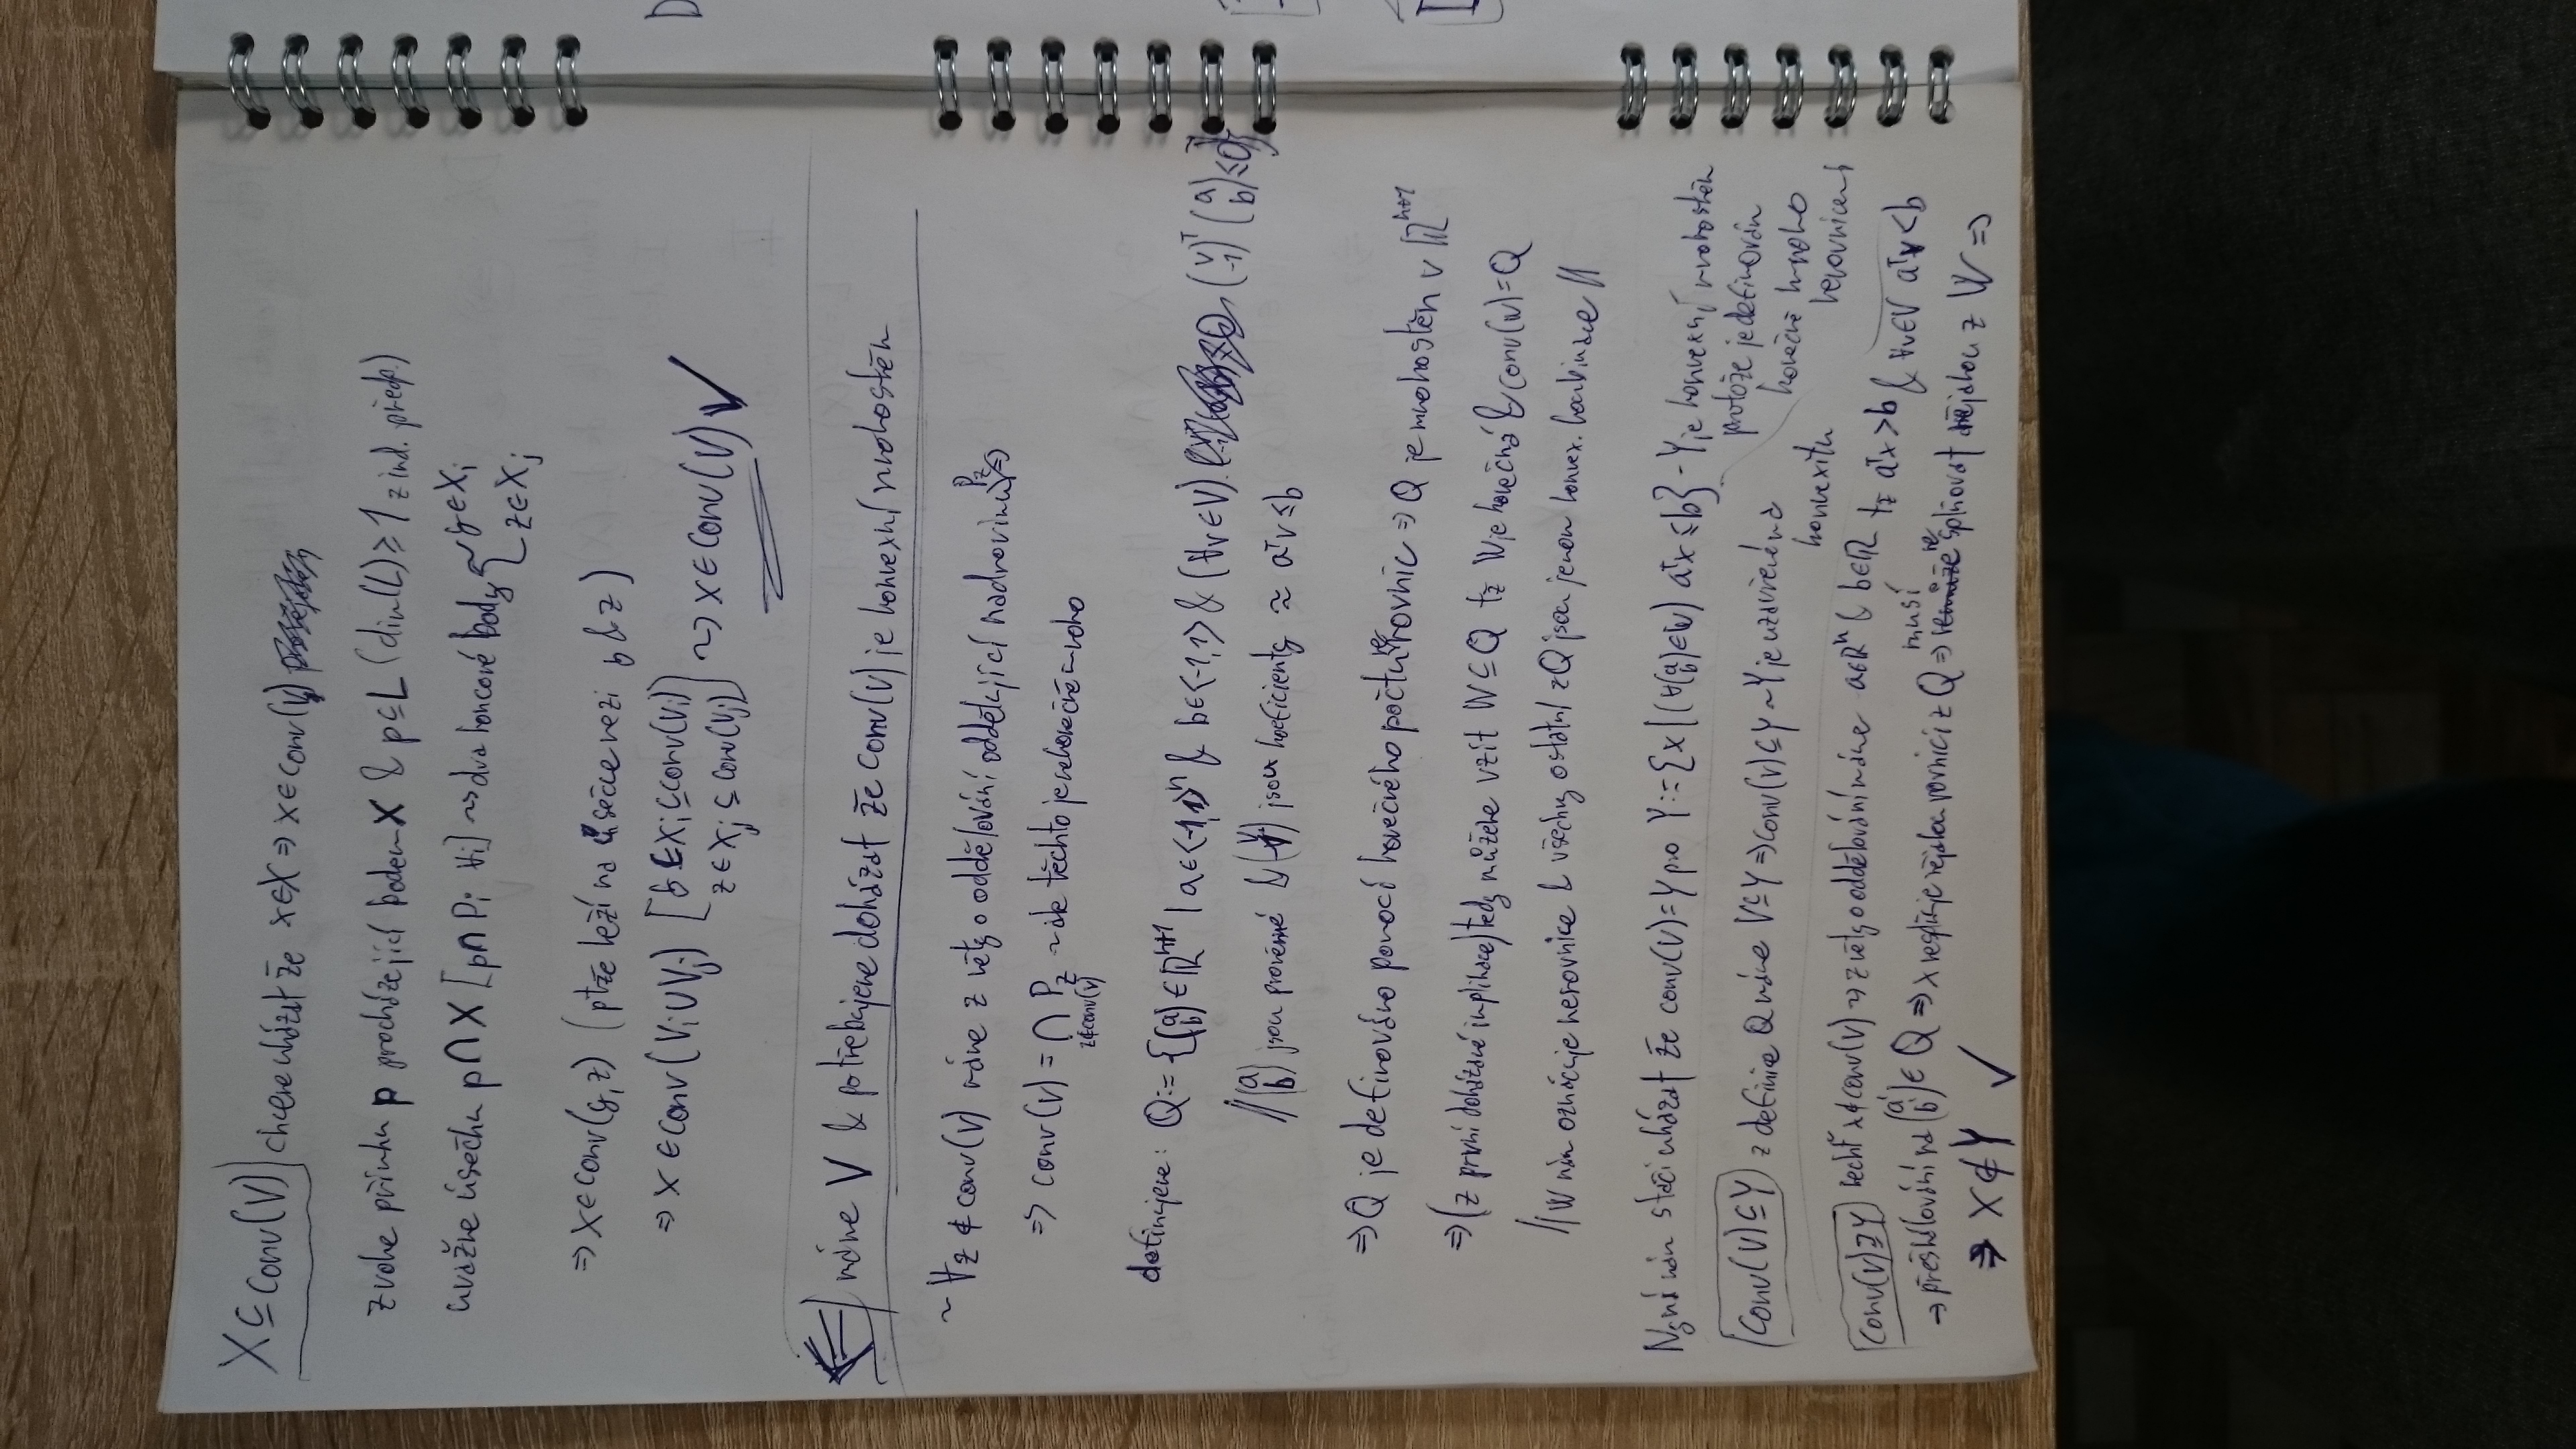 X ⊆ conv(V) chceme ukázat že x∈X ⇒ x∈conv(V)
zvolme přímku p procházející bodem x & p⊆L (dim(L)≥1 z ind. předp.)
uvažme úsečku p∩X [p∩Pi ∀i] ⇝ dva koncové body { y∈Xi
z∈Xj
⇒ x∈conv(y,z) (ptže leží na úsečce mezi y & z)
⇒ x∈conv(Vi∪Vj) [y∈Xi⊆conv(Vi)
z∈Xj⊆conv(Vj)] ⇝ x∈conv(V) ✓
⇐ máme V & potřebujeme dokázat že conv(V) je konvexní mnohostěn
~ ∀z∉conv(V) máme z věty o oddělování oddělující nadrovinu Pz ⇒
⇒ conv(V) = ∩ Pz ~ ale těchto je nekonečně mnoho
z∉conv(V)
definujeme: Q := {(a b) ∈ ℝⁿ⁺¹ | a∈<-1,1>ⁿ & b∈<-1,1> & (∀v∈V). (v -1)ᵀ (a b) ≤ 0}
//(a b) jsou proměnné & (v -1) jsou koeficienty ≈ aᵀv ≤ b
⇒ Q je definováno pomocí konečného počtu nerovnic ⇒ Q je mnohostěn v ℝⁿ⁺¹
⇒ (z první dokázané implikace) tedy můžeme vzít W⊆Q tž W je konečná & conv(W)=Q
//W nám označuje nerovnice & všechny ostatní z Q jsou jenom konvex. kombinace //
Nyní nám stačí ukázat že conv(V)=Y pro Y := {x | (∀(a b)∈W) aᵀx ≤ b} - Y je konvexní mnohostěn
protože je definován
konečně mnoho
nerovnicemi
conv(V)⊆Y z definice Q máme V⊆Y ⇒ conv(V)⊆Y ~ Y je uzavřené na
konvexitu
conv(V)⊇Y nechť x∉conv(V) ⇝ z věty o oddělování máme a∈ℝⁿ & b∈ℝ tž aᵀx>b & ∀v∈V aᵀv<b
→ přeškálování na (a' b')∈Q ⇒ x nesplňuje nějakou rovnici z Q ⇒ musí nesplňovat nějakou z W ⇒
⇒ x∉Y ✓